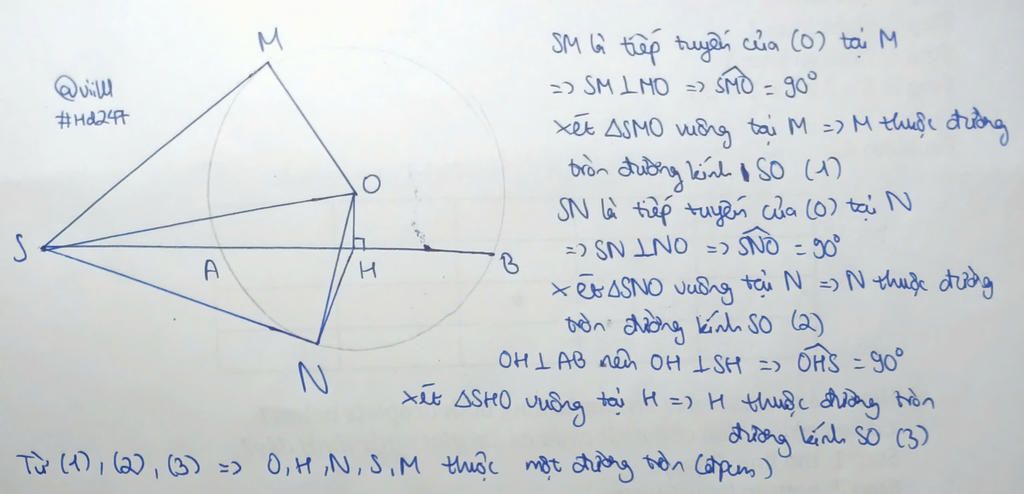 M
@viill
#Hd247
O
S
A
H
B
N
SM là tiếp tuyến của (O) tại M
=> SM ⊥ MO => SMO = 90°
xét ΔSMO vuông tại M => M thuộc đường
tròn đường kính SO (1)
SN là tiếp tuyến của (O) tại N
=> SN ⊥ NO => SNO = 90°
xét ΔSNO vuông tại N => N thuộc đường
tròn đường kính SO (2)
OH ⊥ AB nên OH ⊥ SH => OHS = 90°
xét ΔSHO vuông tại H => H thuộc đường tròn
đường kính SO (3)
Từ (1), (2), (3) => O, H, N, S, M thuộc một đường tròn (đpcm)